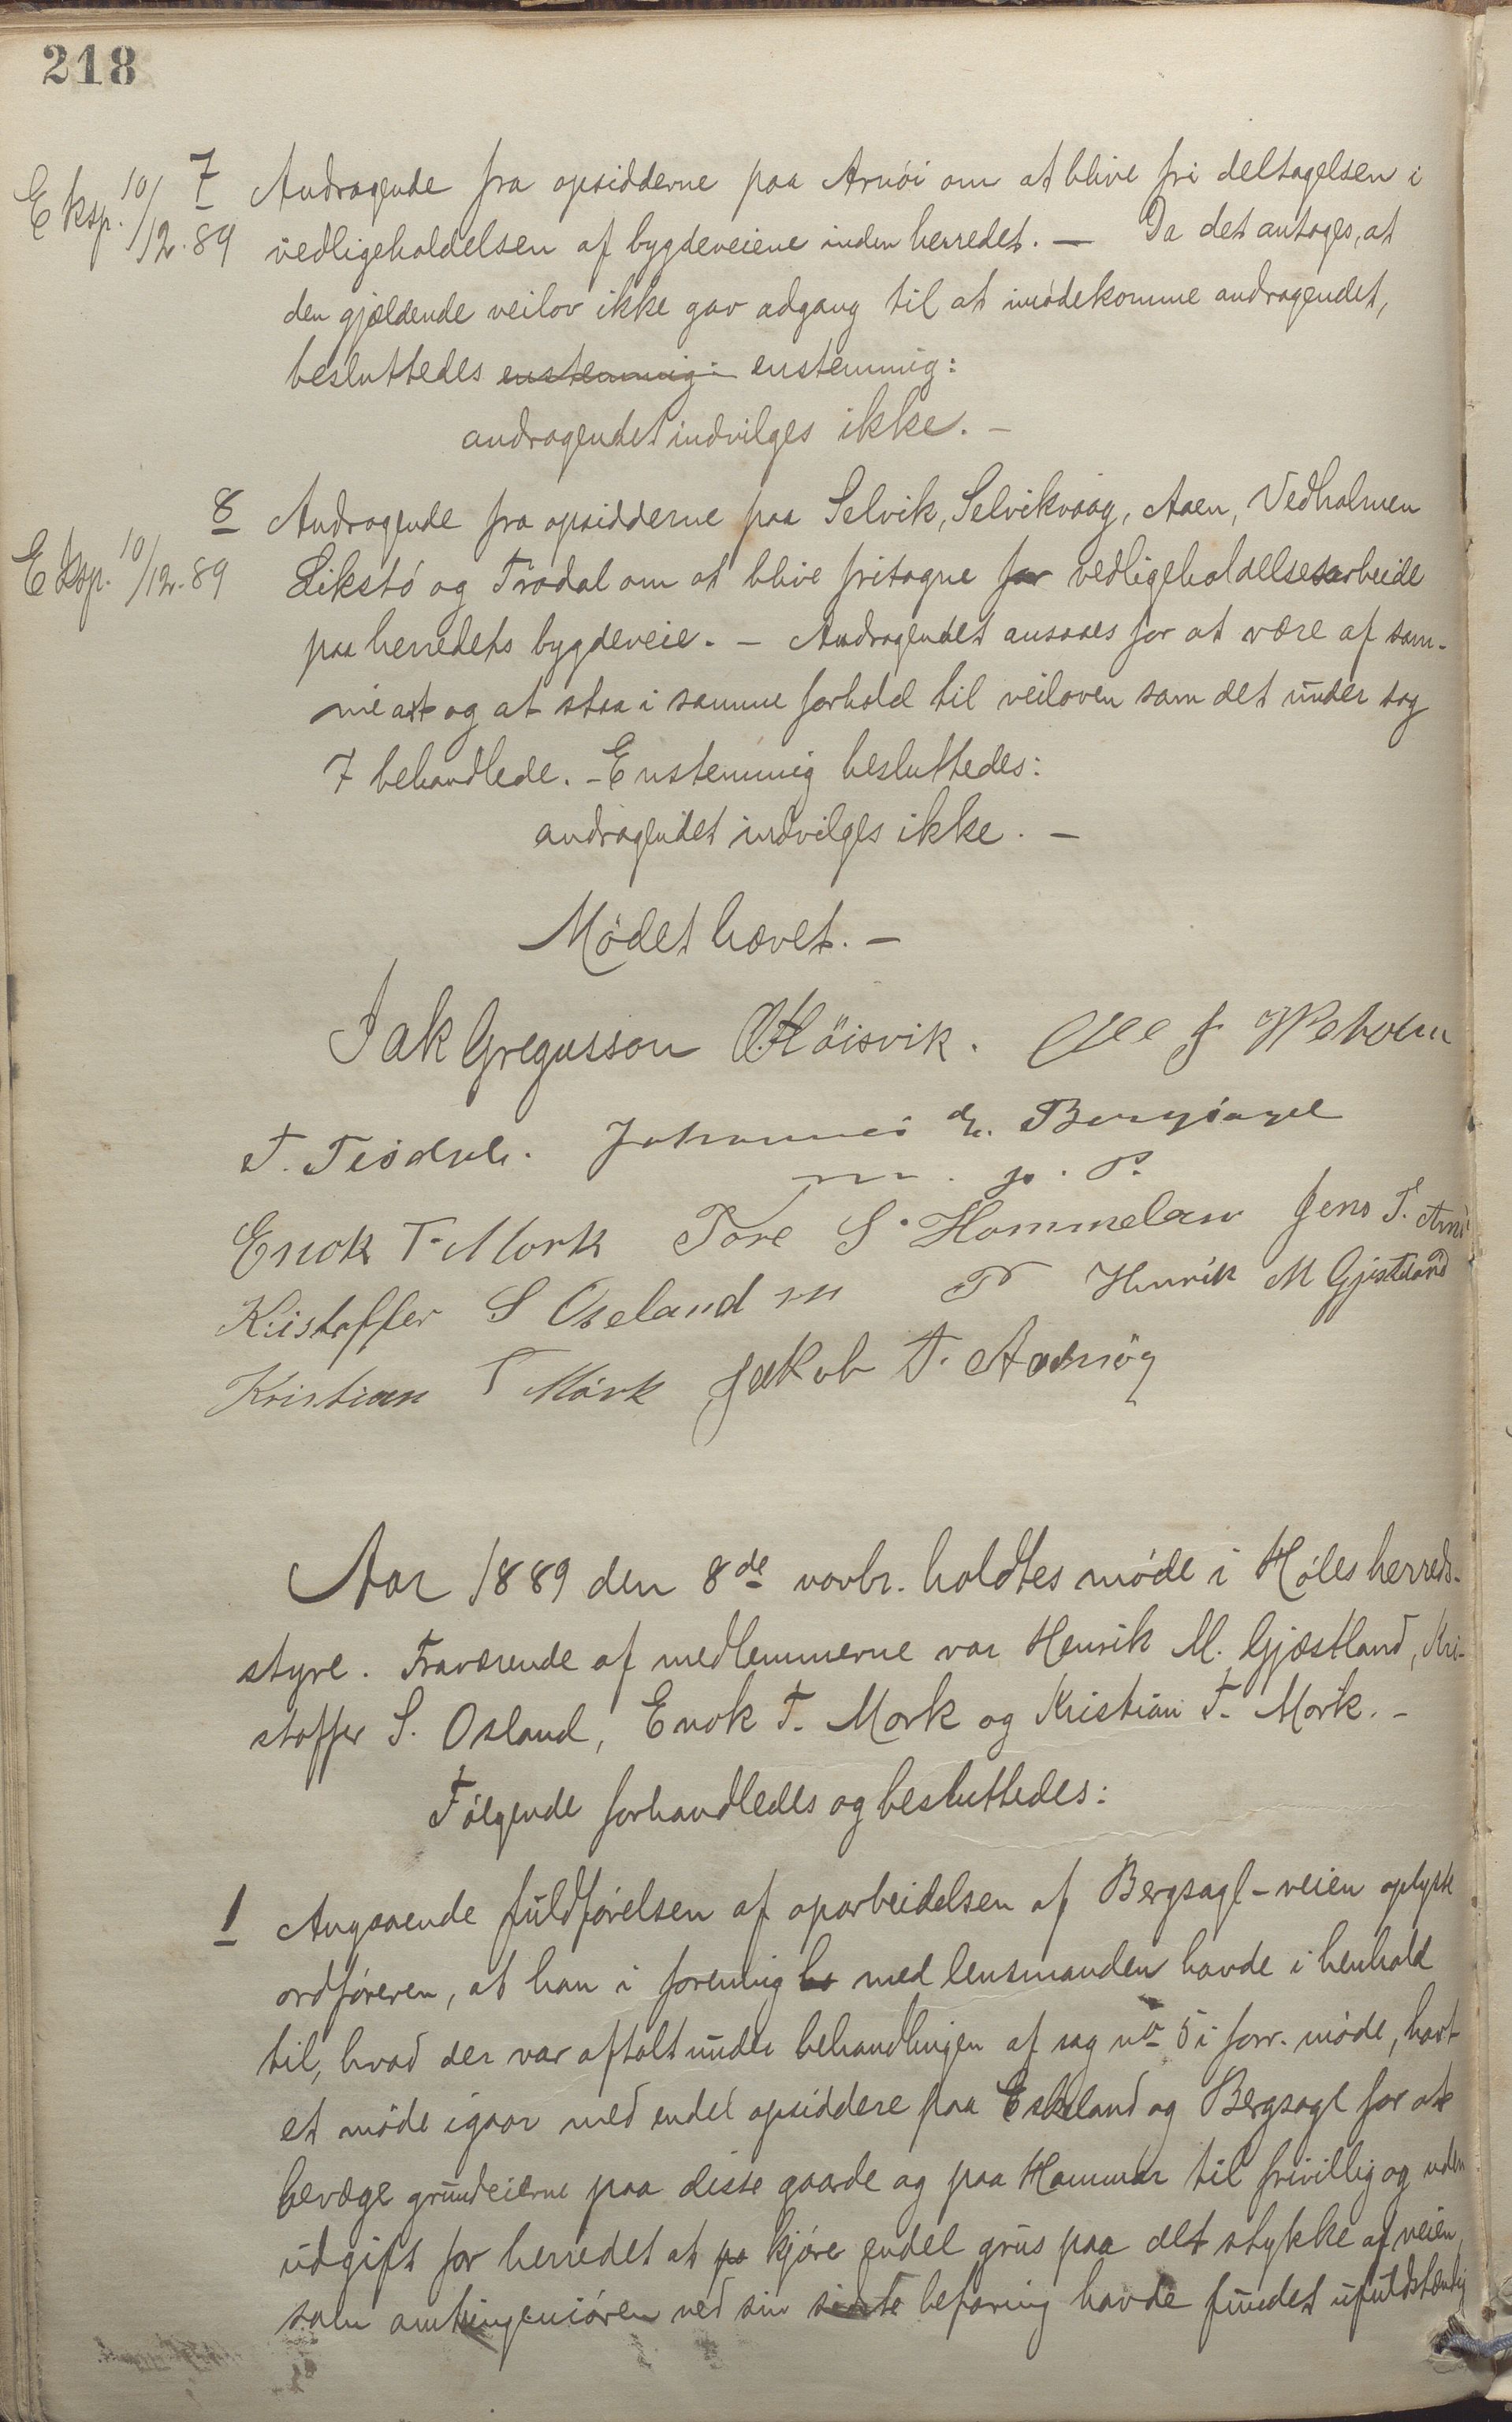 218
7 Andragende fra opsidderne paa Arnöi om at blive fri deltagelsen i
Eksp. 10/12.89 vedligeholdelsen af bygdeveiene inden herredet. — Da det antages, at
den gjældende veilov ikke gav adgang til at imödekomme andragendet,
besluttedes enstemmig: enstemmig:
andragendet indvilges ikke. —
8 Andragende fra opsidderne paa Selvik, Selvikvaag, Aaen, Vedholmen
Eksp. 10/12.89 Likstö og Trodal om at blive fritagne for vedligeholdelsesarbeide
paa herredets bygdeveie. — Andragendet ansaaes for at være af sam-
me art og at staa i samme forhold til veiloven som det under sag
7 behandlede. — Enstemmig besluttedes:
andragendet indvilges ikke. —
Mödet hævet. —
Jak Gregusson O. Höisvik. Ole J
T. Tjödal. Johannes E. Bergsagel
m. p. P.
Enok T. Mork Tore S. Hommeland Jens T.
Kristoffer S Oseland m P Henrik M Gjestland
Kristian T Mörk Jakob T.
Aar 1889 den 8de novbr. holdtes möde i Höles herreds-
styre. Fraværende af medlemmerne var Henrik M. Gjæstland, Kri-
stoffer S. Osland, Enok T. Mork og Kristian T. Mork. —
Følgende forhandledes og besluttedes:
1 Angaaende fuldførelsen af oparbeidelsen af Bergsagl-veien oplyste
ordføreren, at han i forening ha med lensmanden havde i henhold
til, hvad der var aftalt under behandlingen af sag no 5 i forr. möde, havt
et möde igaar med endel opsiddere paa Eskeland og Bergsagl for at
bevæge grundeierne paa disse gaarde og paa Hammer til frivillig og uden
udgift for herredet at pa kjöre endel grus paa det stykke af veien,
som amtsingeniören ved sin sidste befaring havde fundet ufuldstændig